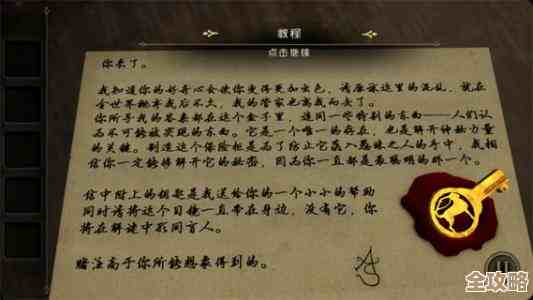 教程
点击继续
你来了。
我知道你的好奇心会使你变得更加出色，请原谅这里的混乱，就在
全世界抛弃我后不久，我的管家也离我而去了。
你所寻我的答案都在这个盒子里，连同一些特别的东西——人们认
为不可能被实现的东西。它是一个唯一的存在，也是解开神秘力量
的关键。制造这个保险柜是为了防止它落入愚昧之人的手中，我相
信你一定能够解开它的秘密，因为你一直都是最聪明的那一个。
信中附上的钥匙是我送给你的一个小小的帮助
同时请将这个目镜一直带在身边，没有它，你
将在解谜中形同盲人。
赌注高于你所能想象得到的。
全攻略